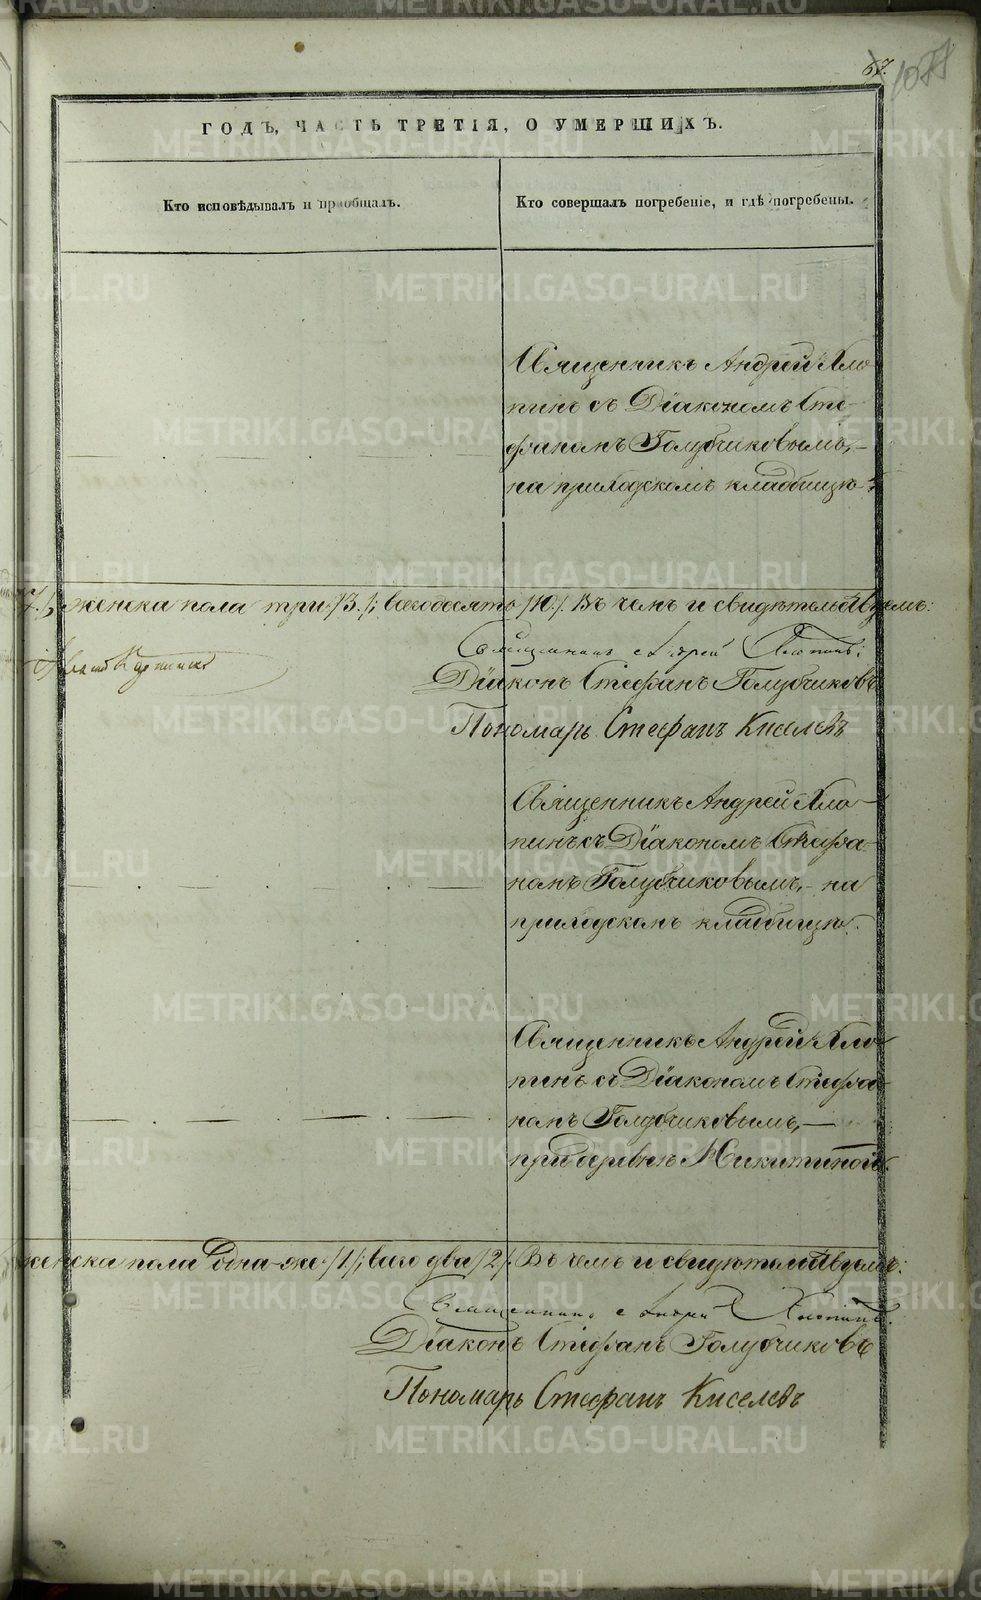 67.
1077
ГОДЪ, ЧАСТЬ ТРЕТІЯ, О УМЕРШИХЪ.
Кто исповѣдывалъ и пріобщалъ.
Кто совершалъ погребеніе, и гдѣ погребены.
Священникъ Андрей Хло-
пинъ съ Діакономъ Сте-
фаномъ Голубчиковымъ,-
на приходскомъ кладбищѣ.
женска пола три /3./; всего десять /10/. Въ чемъ и свидѣтельствуемъ:
Священникъ Андрей Хлопинъ:
Діаконъ Стефанъ Голубчиковъ
Пономарь Стефанъ Киселевъ
Священникъ Андрей Хло-
пинъ съ Діакономъ Стефа-
номъ Голубчиковымъ,- на
приходскомъ кладбищѣ.
Священникъ Андрей Хло-
пинъ съ Діакономъ Стефа-
номъ Голубчиковымъ,-
при деревнѣ Никитиной.
женска пола одна-же /1/; всего два /2/. Въ чемъ и свидѣтельствуемъ:
Священникъ Андрей Хлопинъ.
Діаконъ Стефанъ Голубчиковъ
Пономарь Стефанъ Киселевъ
METRIKI.GASO-URAL.RU